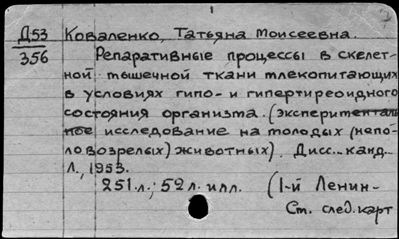 Д53 Коваленко, Татьяна Моисеевна.
356 Репаративные процессы в скелет-
ной мышечной ткани млекопитающих
в условиях гипо- и гипертиреоидного
состояния организма. (эксперименталь-
ное исследование на молодых (непо-
ловозрелых) животных). Дисс... канд.
Л., 1953.
251 л.; 52 л. илл. (1-й Ленин-
См. след. карт